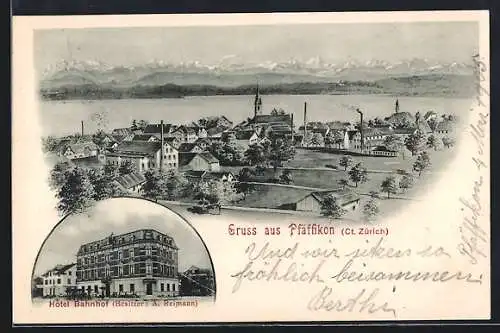 Gruss aus Pfäffikon (Ct. Zürich)
Und wir sitzen so
fröhlich beisammen
Berthi
Hôtel Bahnhof (Besitzer: A. Reimann)
Pfäffikon, 4 Mai 1905